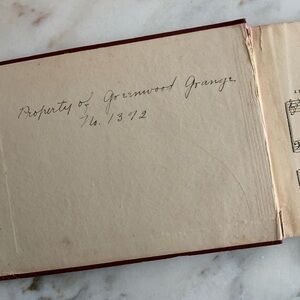 Property of Greenwood Grange
No. 1372